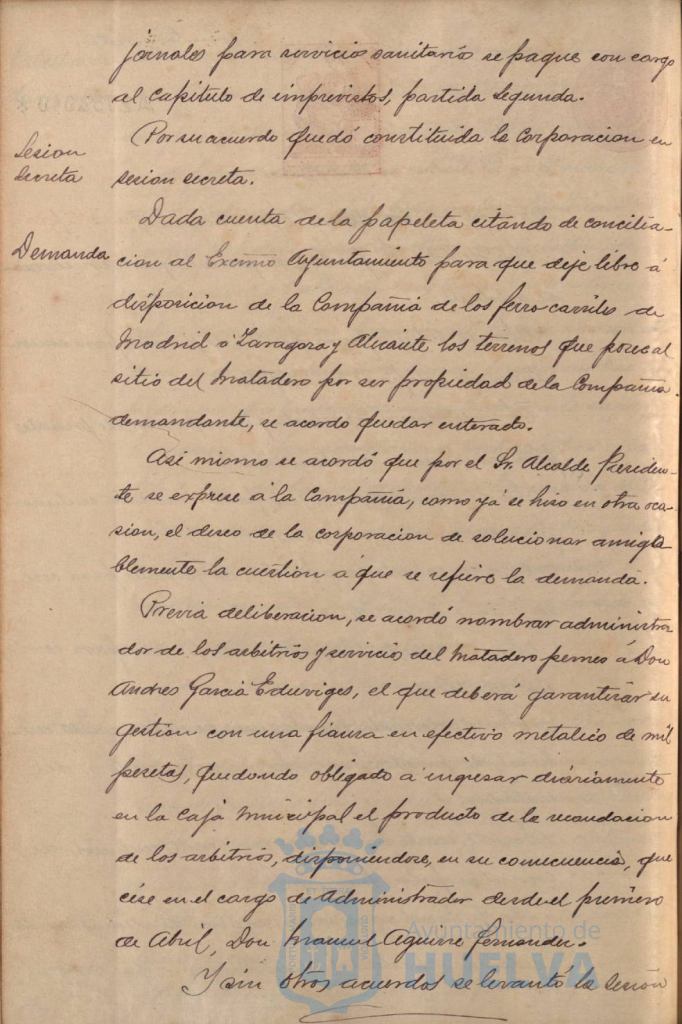 jornales para servicios sanitarios se pague con cargo
al capitulo de imprevistos, partida segunda.
Sesion
Secreta
Por su acuerdo quedó constituida la corporacion en
sesion secreta.
Demanda
Dada cuenta de la papeleta citando de concilia-
cion al Excmo Ayuntamiento para que deje libre á
disposicion de la Compañia de los ferro carriles de
Madrid á Zaragoza y Alicante los terrenos que posee al
sitio del Matadero por ser propiedad de la Compañia
demandante, se acordo quedar enterado.
Asi mismo se acordó que por el Sr. Alcalde Presiden-
te se exprese á la Compañia, como yá se hiso en otra oca-
sion, el deseo de la corporacion de solucionar amiga
blemente la cuestion á que se refiere la demanda.
Previa deliberacion, se acordó nombrar administra
dor de los arbitrios y servicio del Matadero á Don
Andres Garcia Eduviges, el que deberá garantizar su
gestion con una fianza en efectivo metalico de mil
pesetas, quedando obligado á ingresar diariamente
en la Caja Municipal el producto de la recaudacion
de los arbitrios, disponiendose, en su consecuencia, que
cése en el cargo de Administrador desde el primero
de Abril, Don Manuel Aguirre Fernandez.
Y sin otros acuerdos se levantó la sesión
Ayuntamiento de
HUELVA